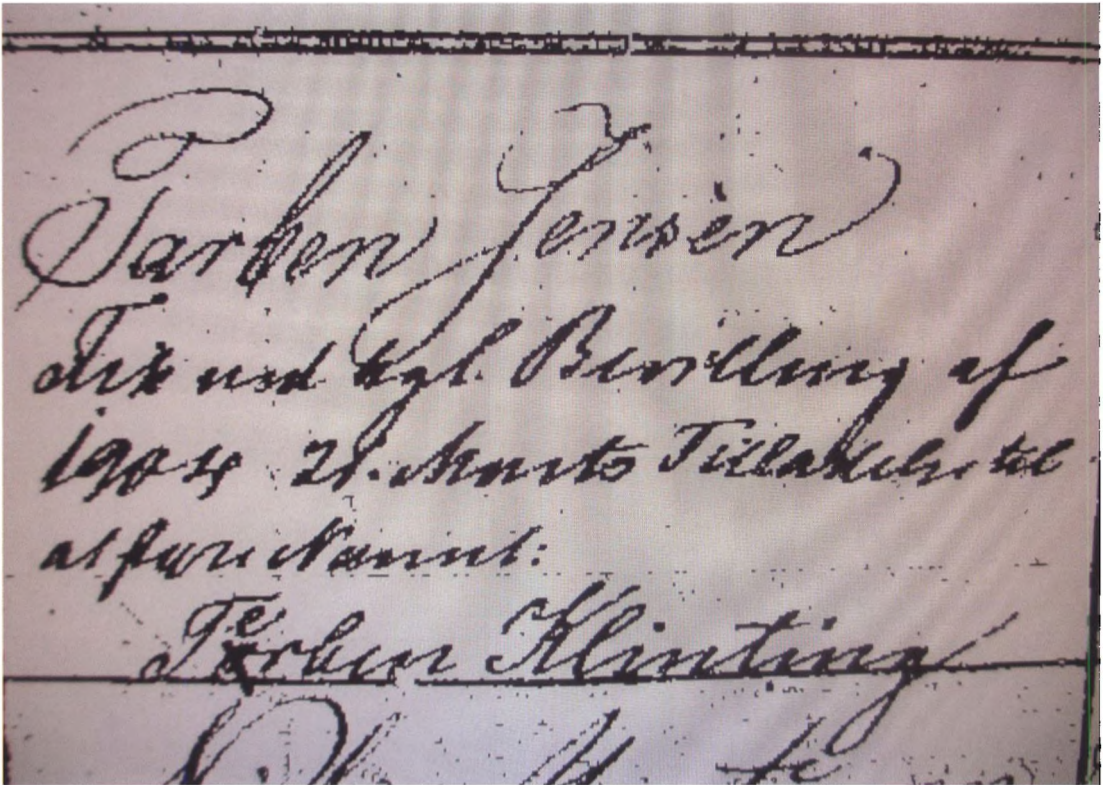 Tarben Jensen
Fik ved kgl. Bevilling af
1904 21. Marts Tilladelse til
at føre Navnet:
Terben Klinting